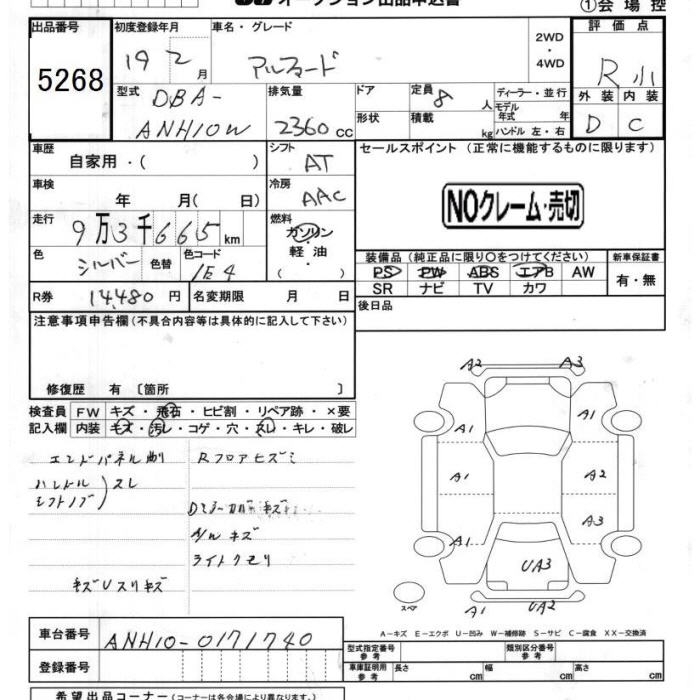 オークション出品申込書
①会場控
出品番号
5268
初度登録年月
19 2 月
車名・グレード
アルファード
2WD
・
4WD
評価点
R小
外装 内装
D C
型式
DBA-
ANH10W
排気量
2360 cc
ドア
形状
定員 8 人
積載 kg
ディーラー・並行
モデル年式 年
ハンドル 左・右
車歴
自家用・( )
シフト
AT
車検
年 月( 日)
冷房
AAC
セールスポイント (正常に機能するものに限ります)
NOクレーム・売切
走行
9万3千665 km
燃料
ガソリン
・
軽油
色
シルバー
色替
色コード
1E4
装備品 (純正品に限り○をつけてください)
PS PW ABS エアB AW
SR ナビ TV カワ
新車保証書
有・無
R券 14,480 円
名変期限 月 日
後日品
注意事項申告欄 (不具合内容等は具体的に記入して下さい)
修復歴 有 〔箇所 〕
検査員記入欄
FW キズ・飛石・ヒビ割・リペア跡・×要
内装 キズ・汚レ・コゲ・穴・スレ・キレ・破レ
エンドパネル剛 Rフロアヒズミ
ハンドル
シフトノブ ) スレ
キズ
A/W キズ
ライトクモリ
キズUスリキズ
A2 A3
A1 A1
A1 A2
A3
A1
UA3
A1 UA2
スペア
A-キズ E-エクボ U-凹み W-補修跡 S-サビ C-腐食 XX-交換済
車台番号
ANH10-0171740
登録番号
型式指定番号 参考
類別区分番号 参考
車庫証明用 参考
長さ cm 幅 cm 高さ cm
希望出品コーナー (コーナーは各会場により異なります。)